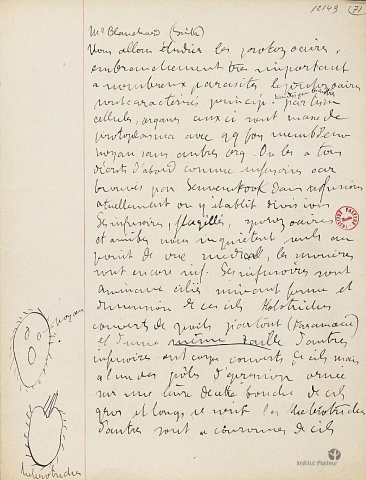 10149 (71
Mr Blanchard (Suite)
Nous allons étudier les protozoaires,
embranchement très important
a nombreux parasites les protozoaires
sont caracterisés princip. par leur
cellules, organes eux ici sont masse de
protoplasma avec qq fois membrane
noyau sans autres org. On les a tous
décrits d'abord comme infusoires car
trouvés par dans infusions
actuellement on y établit divisions
Les infusoires, flagellés, sporozoaires
et amibes nous inquiètent seuls au
point de vue medical, les monères
sont encore inf. Les infusoires sont
animaux ciliés suivant forme et
dimension de ces cils Holotriches
couverts de partout (Paramecie)
et d'une même taille d'autres
infusoires ont corps couverts de cils mais
a l'un des pôles
sur une de cette bouche de cils
gros et longs, ce sont les heterotriches
d'autres sont a couronnes de cils
noyau
heterotriches
INSTITUT PASTEUR
Institut Pasteur